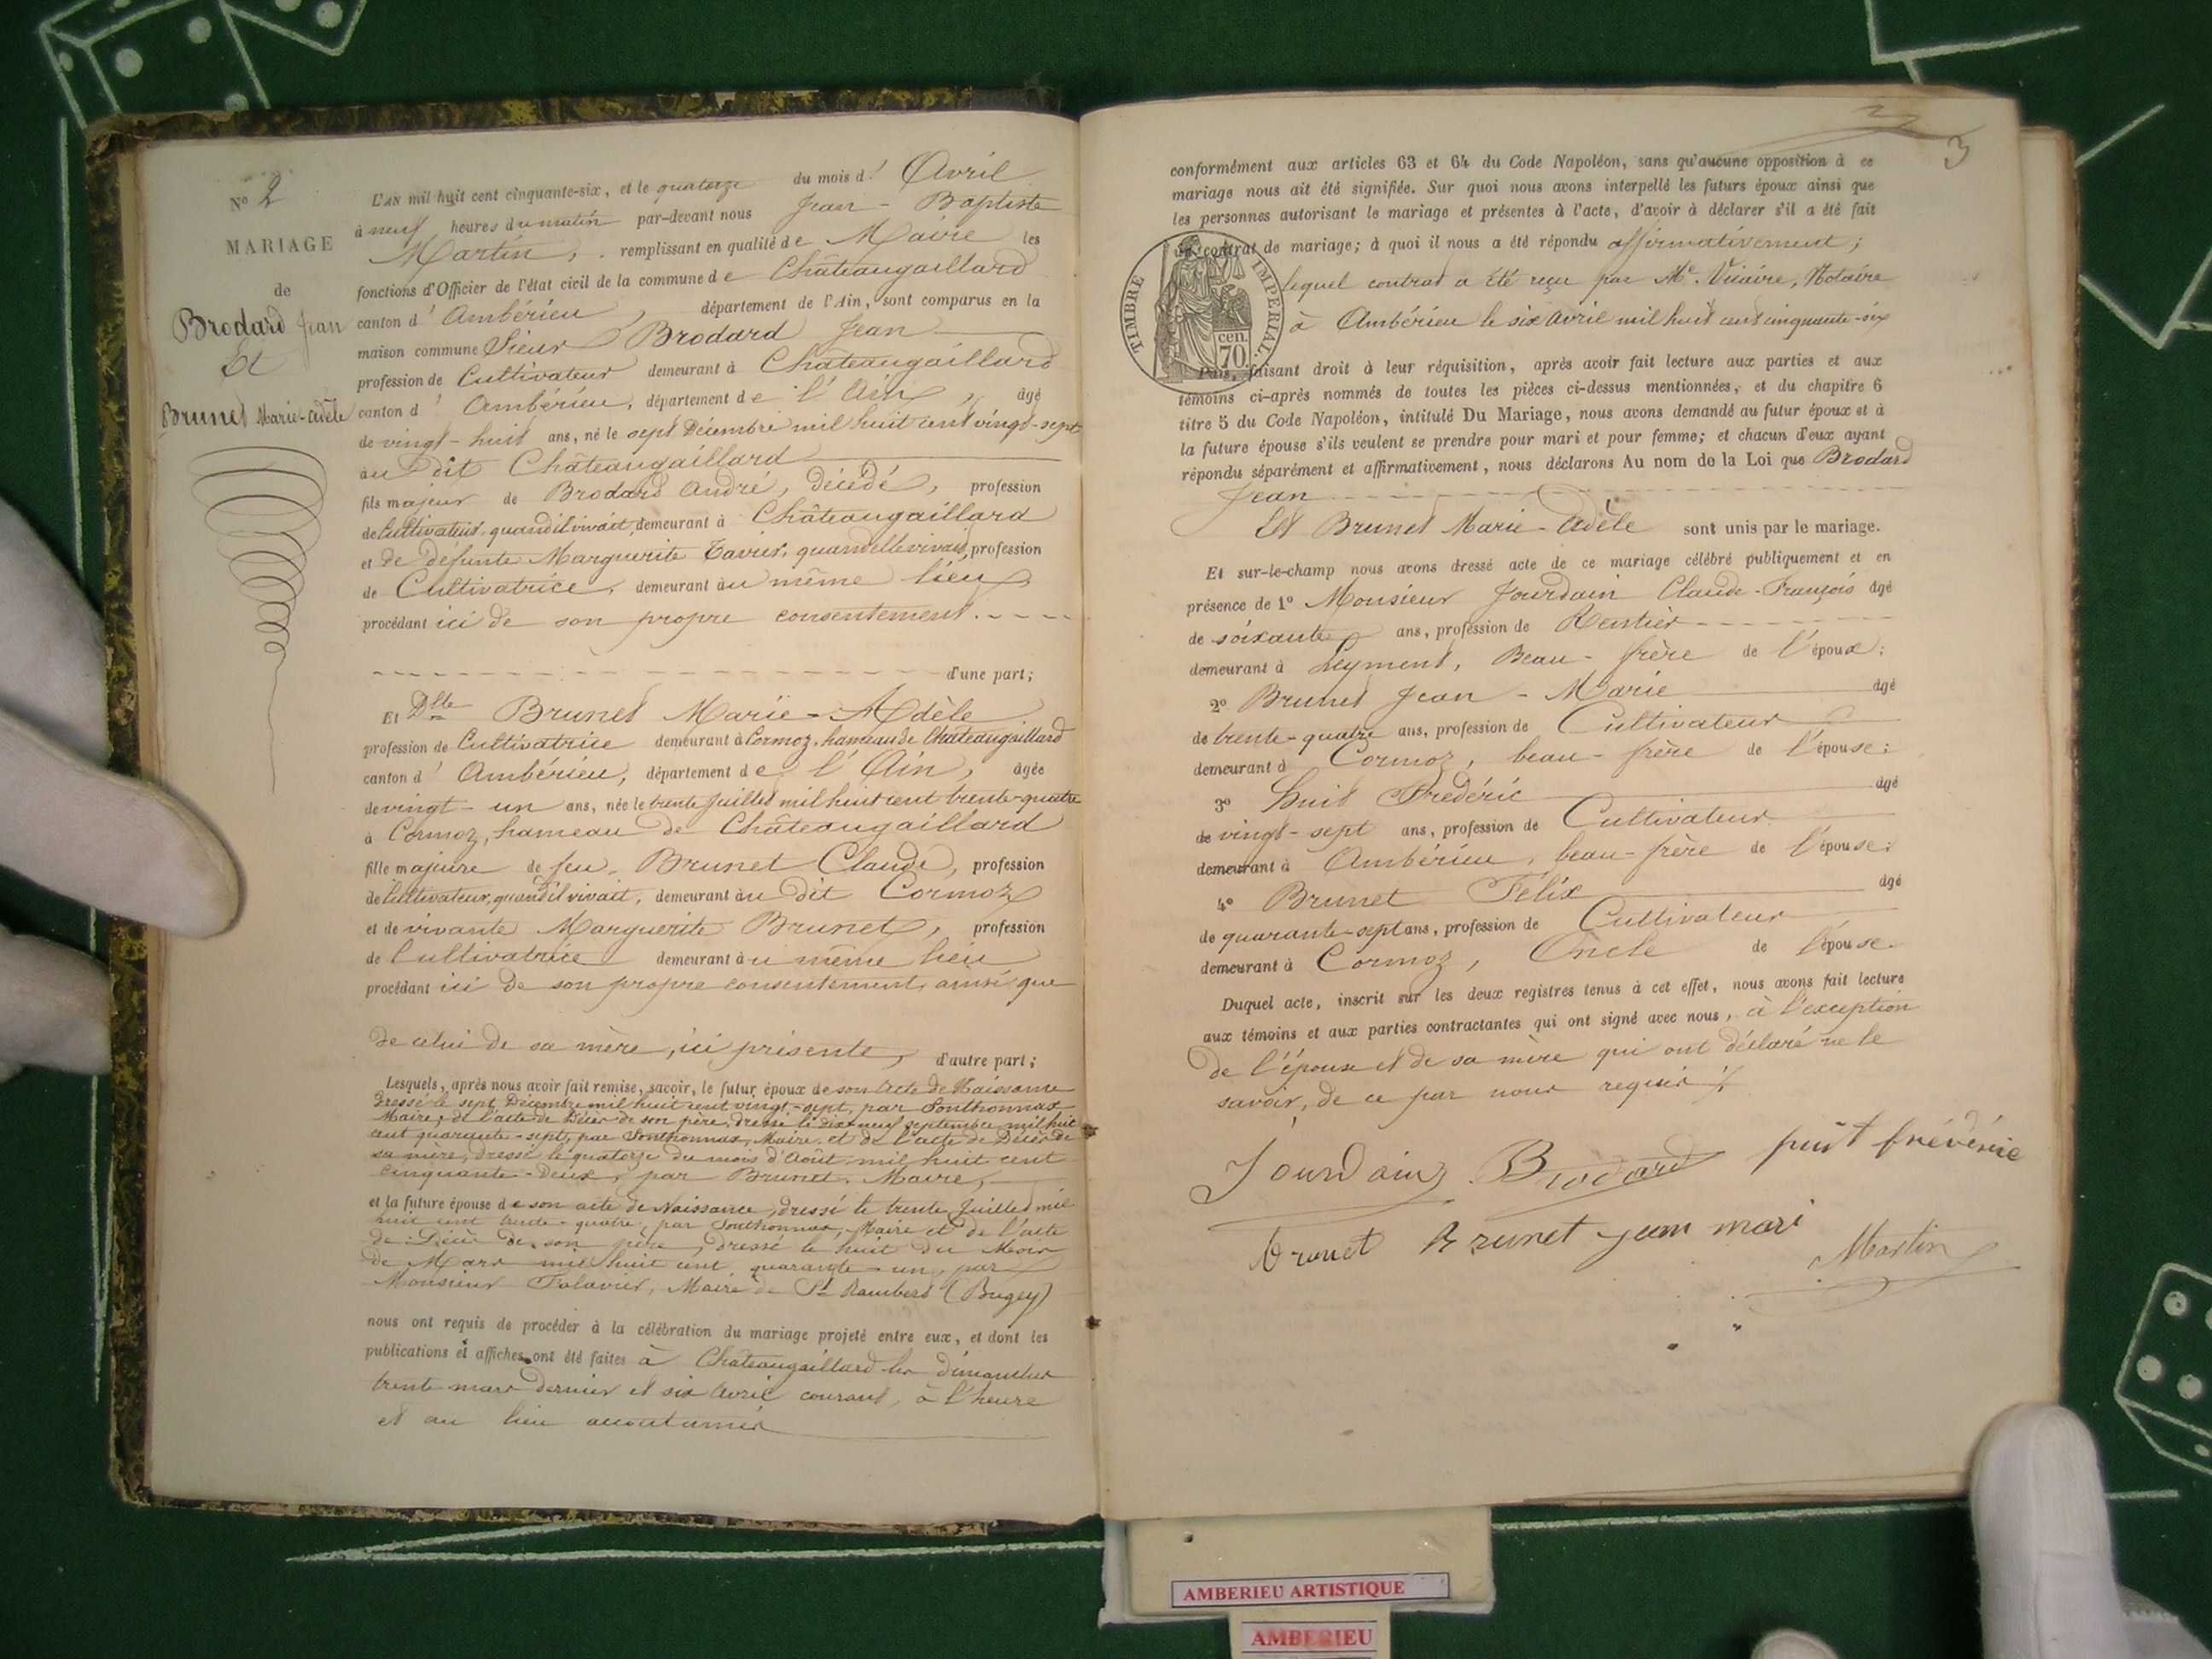 N° 2
MARIAGE
de
Brodard Jean
Et
Brunet Marie-Adèle
L'AN mil huit cent cinquante-six, et le quatorze du mois d' Avril
à neuf heures du matin par-devant nous Jean-Baptiste
Martin, remplissant en qualité de Maire les
fonctions d'Officier de l'état civil de la commune de Châteaugaillard
canton d' Ambérieu, département de l'Ain, sont comparus en la
maison commune Sieur Brodard Jean
profession de Cultivateur demeurant à Châteaugaillard
canton d' Ambérieu, département de l'Ain, âgé
de vingt-huit ans, né le sept Décembre mil huit cent vingt-sept
au dit Châteaugaillard
fils majeur de Brodard André, décédé, profession
de Cultivateur, quand il vivait, demeurant à Châteaugaillard
et de défunte Marguerite Tavier, quand elle vivait, profession
de Cultivatrice, demeurant au même lieu
procédant ici de son propre consentement.
d'une part;
Et Dlle Brunet Marie-Adèle
profession de Cultivatrice demeurant à Cormoz, hameau de Châteaugaillard
canton d' Ambérieu, département de l'Ain, âgée
de vingt-un ans, née le trente Juillet mil huit cent trente-quatre
à Cormoz, hameau de Châteaugaillard
fille majeure de feu Brunet Claude, profession
de Cultivateur, quand il vivait, demeurant au dit Cormoz
et de vivante Marguerite Brunet, profession
de Cultivatrice demeurant au même lieu
procédant ici de son propre consentement, ainsi que
de celui de sa mère, ici présente, d'autre part;
Lesquels, après nous avoir fait remise, savoir, le futur époux de son acte de Naissance
dressé le sept Décembre mil huit cent vingt-sept, par Sonthonnax
Maire; de l'acte de Décès de son père, dressé le dix neuf septembre mil huit
cent quarante-sept, par Sonthonnax, Maire et de l'acte de Décès de
sa mère, dressé le quatorze du mois d'Août mil huit cent
cinquante-deux, par Brunet, Maire,
et la future épouse de son acte de Naissance, dressé le trente Juillet mil
huit cent trente-quatre, par Sonthonnax, Maire et de l'acte
de Décès de son père, dressé le huit du Mois
de Mars mil huit cent quarante-un, par
Monsieur Falavier, Maire de St Rambert (Bugey)
nous ont requis de procéder à la célébration du mariage projeté entre eux, et dont les
publications et affiches ont été faites à Châteaugaillard les dimanches
trente mars dernier et six Avril courant, à l'heure
et au lieu accoutumés
3
conformément aux articles 63 et 64 du Code Napoléon, sans qu'aucune opposition à ce
mariage nous ait été signifiée. Sur quoi nous avons interpellé les futurs époux ainsi que
les personnes autorisant le mariage et présentes à l'acte, d'avoir à déclarer s'il a été fait
un contrat de mariage; à quoi il nous a été répondu affirmativement;
lequel contrat a été reçu par Me. Vicaire, Notaire
à Ambérieu le six Avril mil huit cent cinquante-six
TIMBRE IMPERIAL.
cen.
70
Puis, faisant droit à leur réquisition, après avoir fait lecture aux parties et aux
témoins ci-après nommés de toutes les pièces ci-dessus mentionnées, et du chapitre 6
titre 5 du Code Napoléon, intitulé Du Mariage, nous avons demandé au futur époux et à
la future épouse s'ils veulent se prendre pour mari et pour femme; et chacun d'eux ayant
répondu séparément et affirmativement, nous déclarons Au nom de la Loi que Brodard
Jean
Et Brunet Marie-Adèle sont unis par le mariage.
Et sur-le-champ nous avons dressé acte de ce mariage célébré publiquement et en
présence de 1° Monsieur Jourdain Claude-François âgé
de soixante ans, profession de Rentier
demeurant à Leyment, Beau-frère de l'époux;
2° Brunet Jean-Marie âgé
de trente-quatre ans, profession de Cultivateur
demeurant à Cormoz, beau-frère de l'épouse;
3° Frédéric âgé
de vingt-sept ans, profession de Cultivateur
demeurant à Ambérieu, beau-frère de l'épouse;
4° Brunet Félix âgé
de quarante-sept ans, profession de Cultivateur
demeurant à Cormoz, Oncle de l'épouse.
Duquel acte, inscrit sur les deux registres tenus à cet effet, nous avons fait lecture
aux témoins et aux parties contractantes qui ont signé avec nous, à l'exception
de l'épouse et de sa mère qui ont déclaré ne le
savoir, de ce par nous requis
Jourdain Brodard
Brunet Brunet jean mari
Martin
AMBERIEU ARTISTIQUE
AMBERIEU